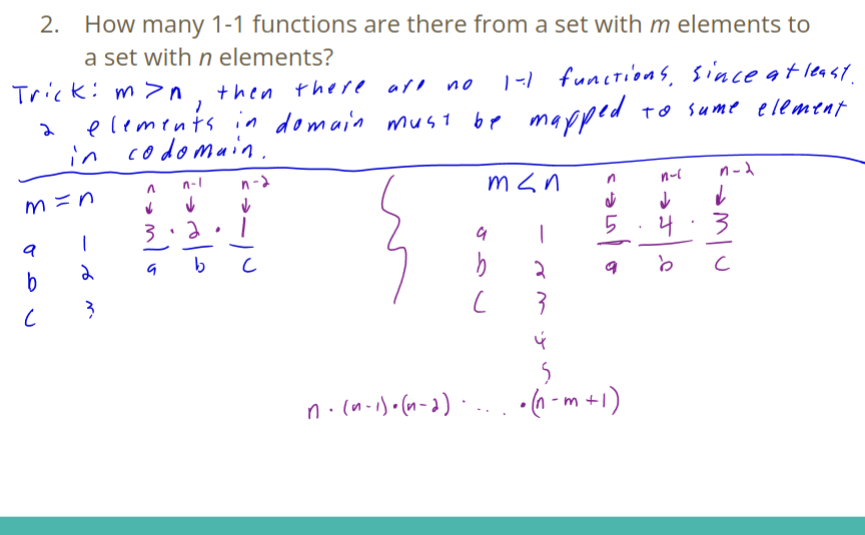 2. How many 1-1 functions are there from a set with m elements to
a set with n elements?
Trick: m > n, then there are no 1-1 functions, since at least
2 elements in domain must be mapped to same element
in codomain.
m = n
n n-1 n-2
↓ ↓ ↓
3 · 2 · 1
a b c
a 1
b 2
c 3
m < n
n n-1 n-2
↓ ↓ ↓
5 · 4 · 3
a b c
a 1
b 2
c 3
4
5
n · (n-1) · (n-2) · ... · (n-m+1)